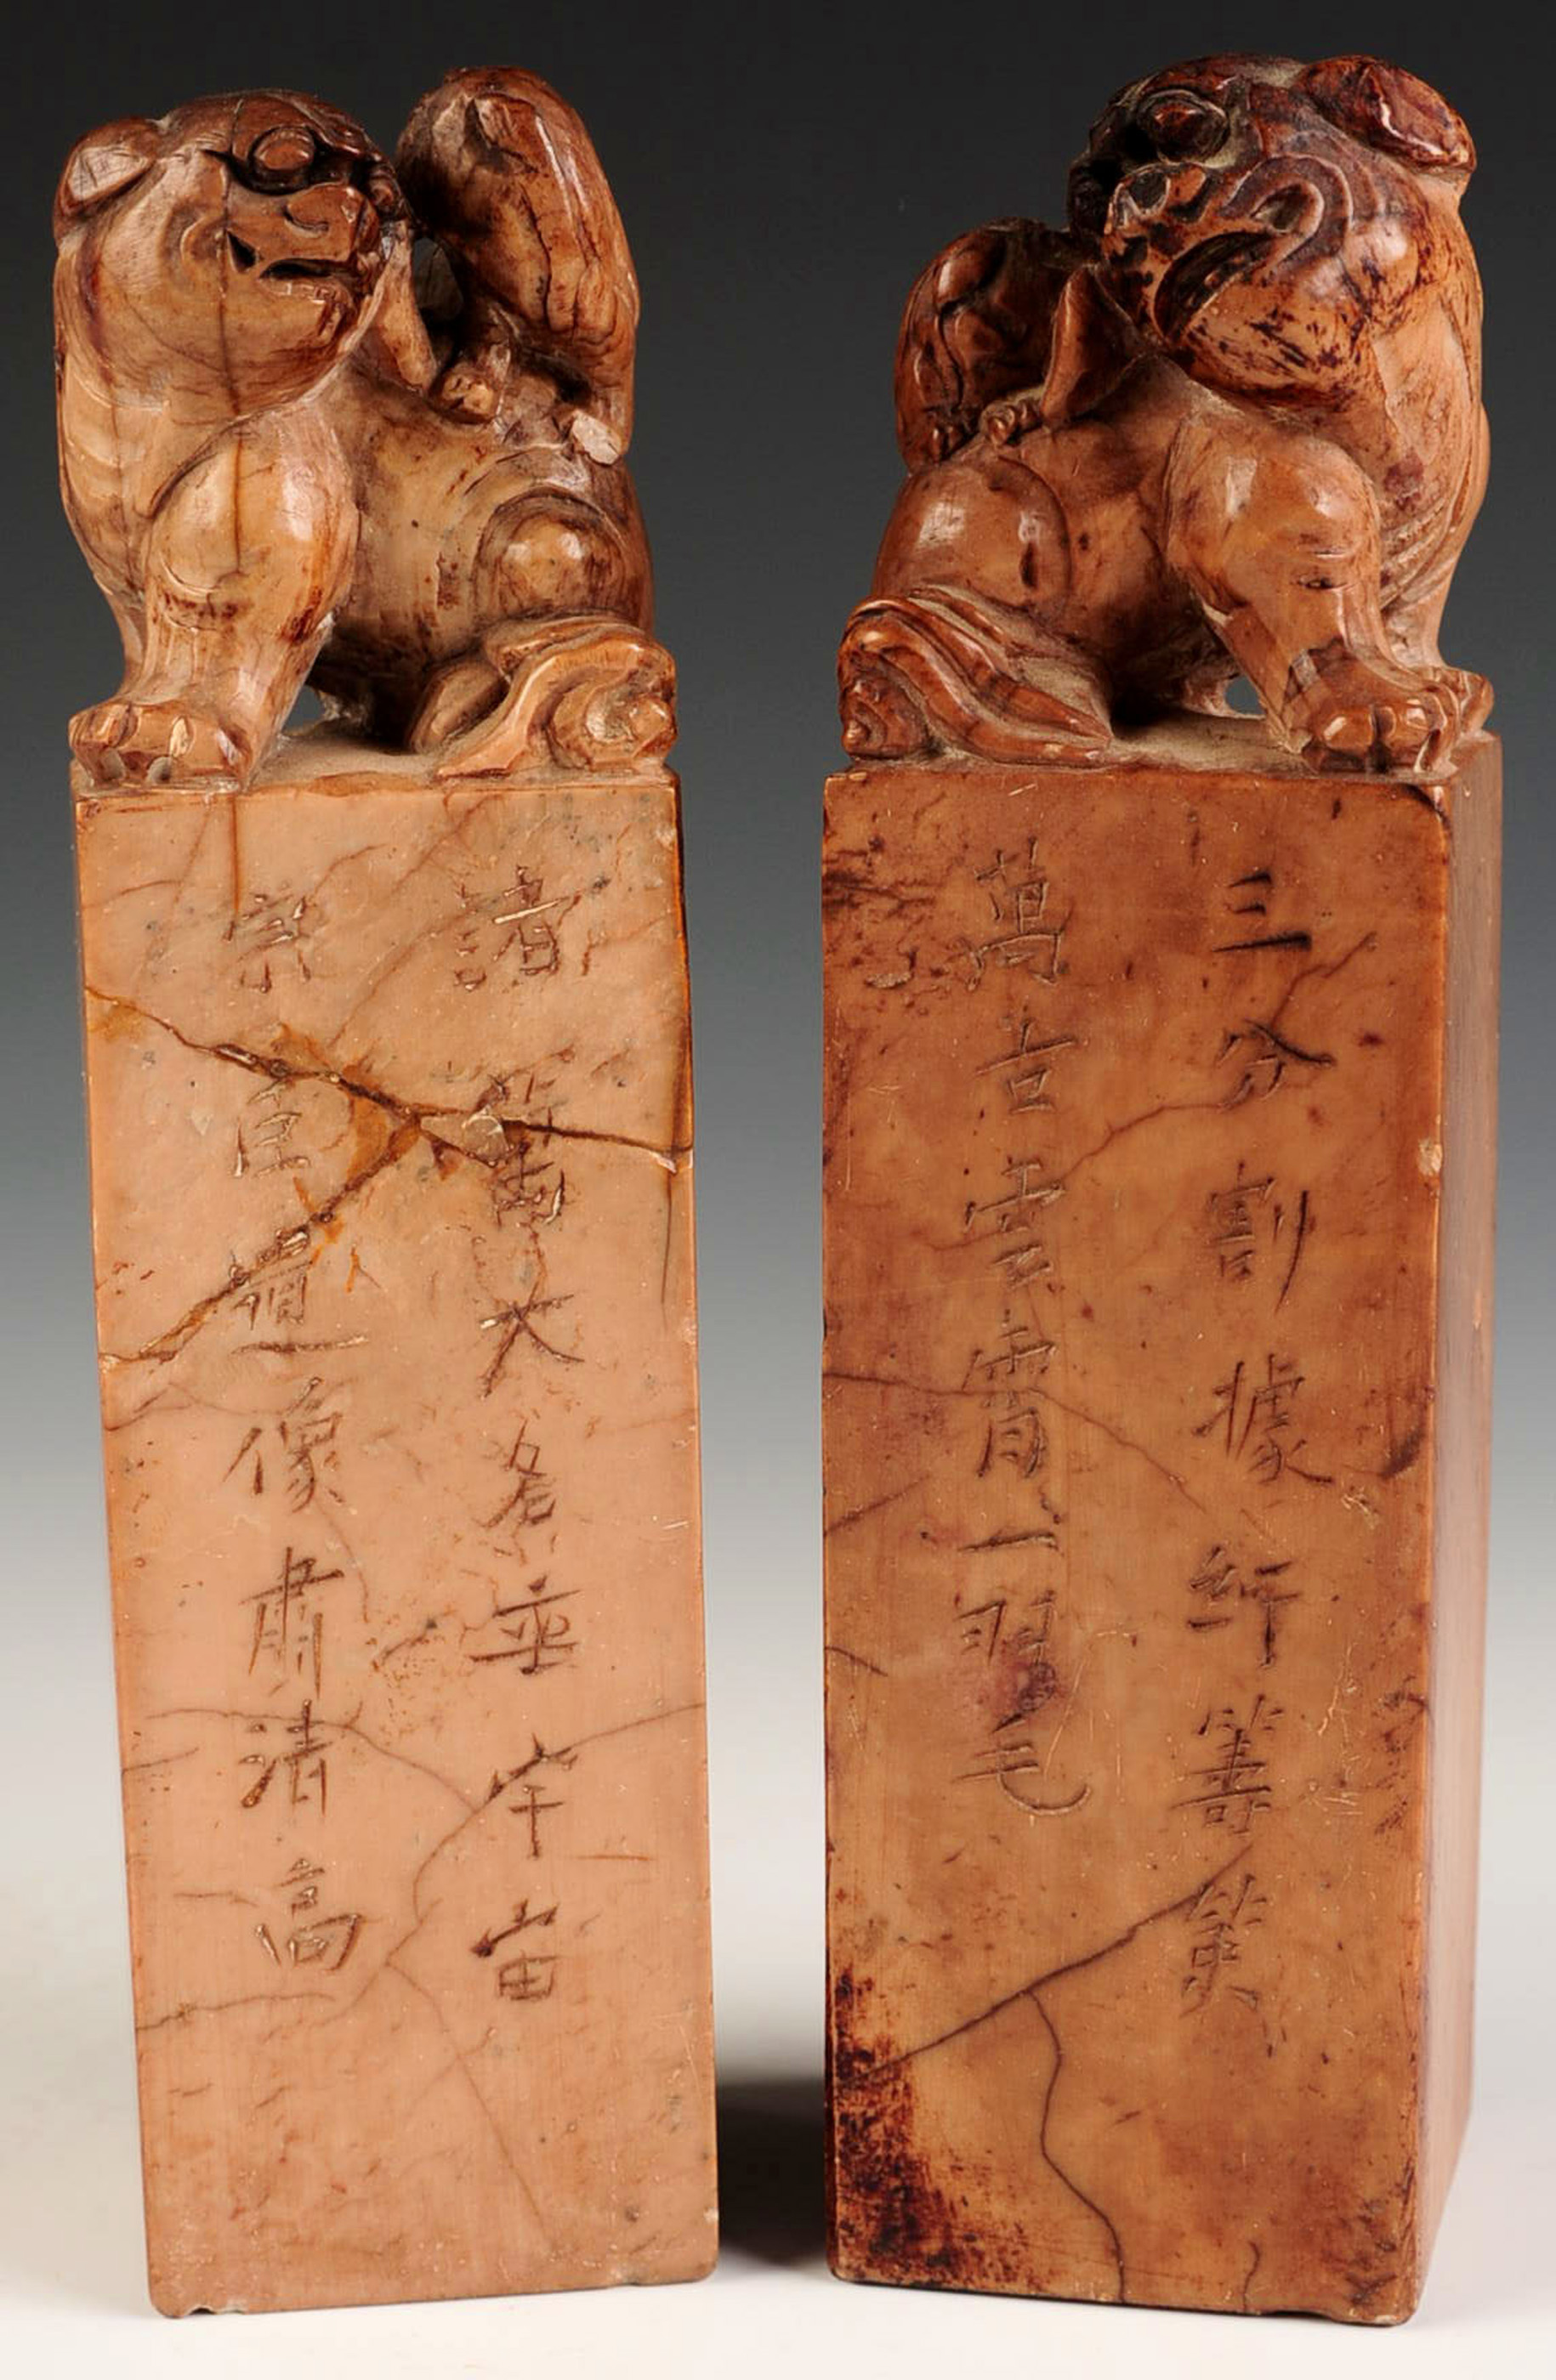 諸葛大名垂宇宙
宗臣遺像肅清高
三分割據紆籌策
萬古雲霄一羽毛